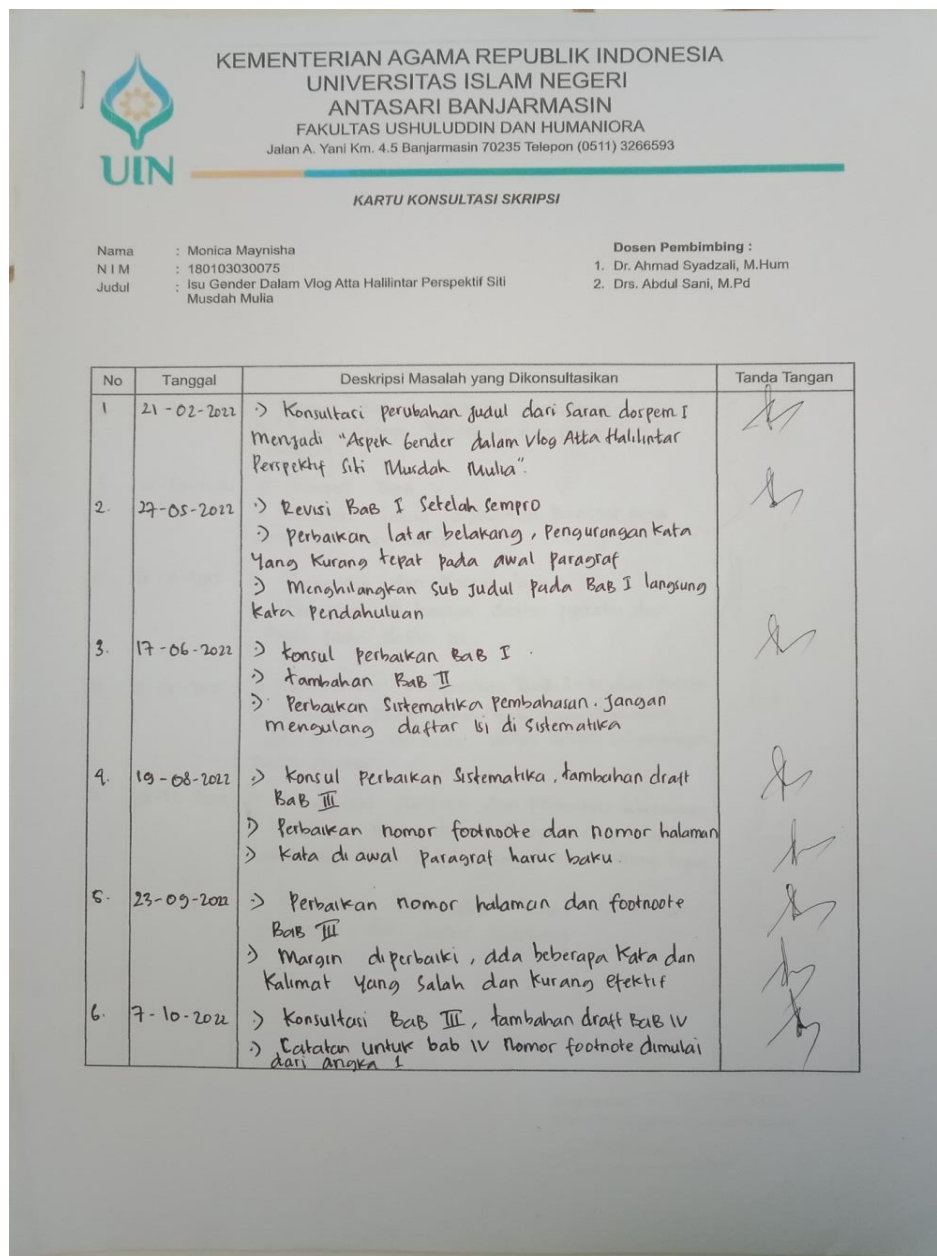 KEMENTERIAN AGAMA REPUBLIK INDONESIA
UNIVERSITAS ISLAM NEGERI
ANTASARI BANJARMASIN
FAKULTAS USHULUDDIN DAN HUMANIORA
Jalan A. Yani Km. 4.5 Banjarmasin 70235 Telepon (0511) 3266593
UIN
KARTU KONSULTASI SKRIPSI
Nama : Monica Maynisha
N I M : 180103030075
Judul : Isu Gender Dalam Vlog Atta Halilintar Perspektif Siti
Musdah Mulia
Dosen Pembimbing :
1. Dr. Ahmad Syadzali, M.Hum
2. Drs. Abdul Sani, M.Pd
No Tanggal Deskripsi Masalah yang Dikonsultasikan Tanda Tangan
1 21-02-2022 :) Konsultasi perubahan judul dari Saran dospem I
Menjadi "Aspek Gender dalam Vlog Atta Halilintar
Perspektif Siti Musdah Mulia".
2. 27-05-2022 :) Revisi BaB I Setelah Sempro
:) perbaikan latar belakang, Pengurangan Kata
Yang Kurang tepat pada awal Paragraf
:) Menghilangkan Sub Judul pada BaB I langsung
Kata Pendahuluan
3. 17-06-2022 :) Konsul perbaikan BaB I.
:) tambahan BaB II
:) Perbaikan Sistematika Pembahasan. Jangan
mengulang daftar isi di Sistematika
4. 19-08-2022 :) Konsul Perbaikan Sistematika, tambahan draft
BaB III
:) Perbaikan nomor footnoote dan nomor halaman
:) Kata di awal paragraf harus baku.
5. 23-09-2022 :) Perbaikan nomor halaman dan footnoote
BaB III
:) Margin diperbaiki, ada beberapa Kata dan
Kalimat Yang Salah dan Kurang efektif
6. 7-10-2022 :) Konsultasi BaB III, tambahan draft BaB IV
:) Catatan untuk bab IV Nomor footnote dimulai
dari angka 1